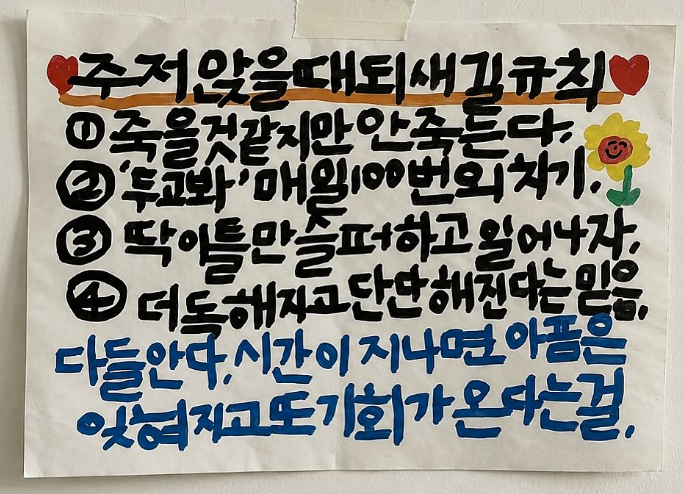 주저앉을때되새길규칙
① 죽을것같지만 안죽는다.
② '두고봐' 매일100번외치기.
③ 딱이틀만슬퍼하고 일어나자.
④ 더독해지고단단해진다는믿음.
다들안다. 시간이 지나면 아픔은
잊혀지고또기회가온다는걸.